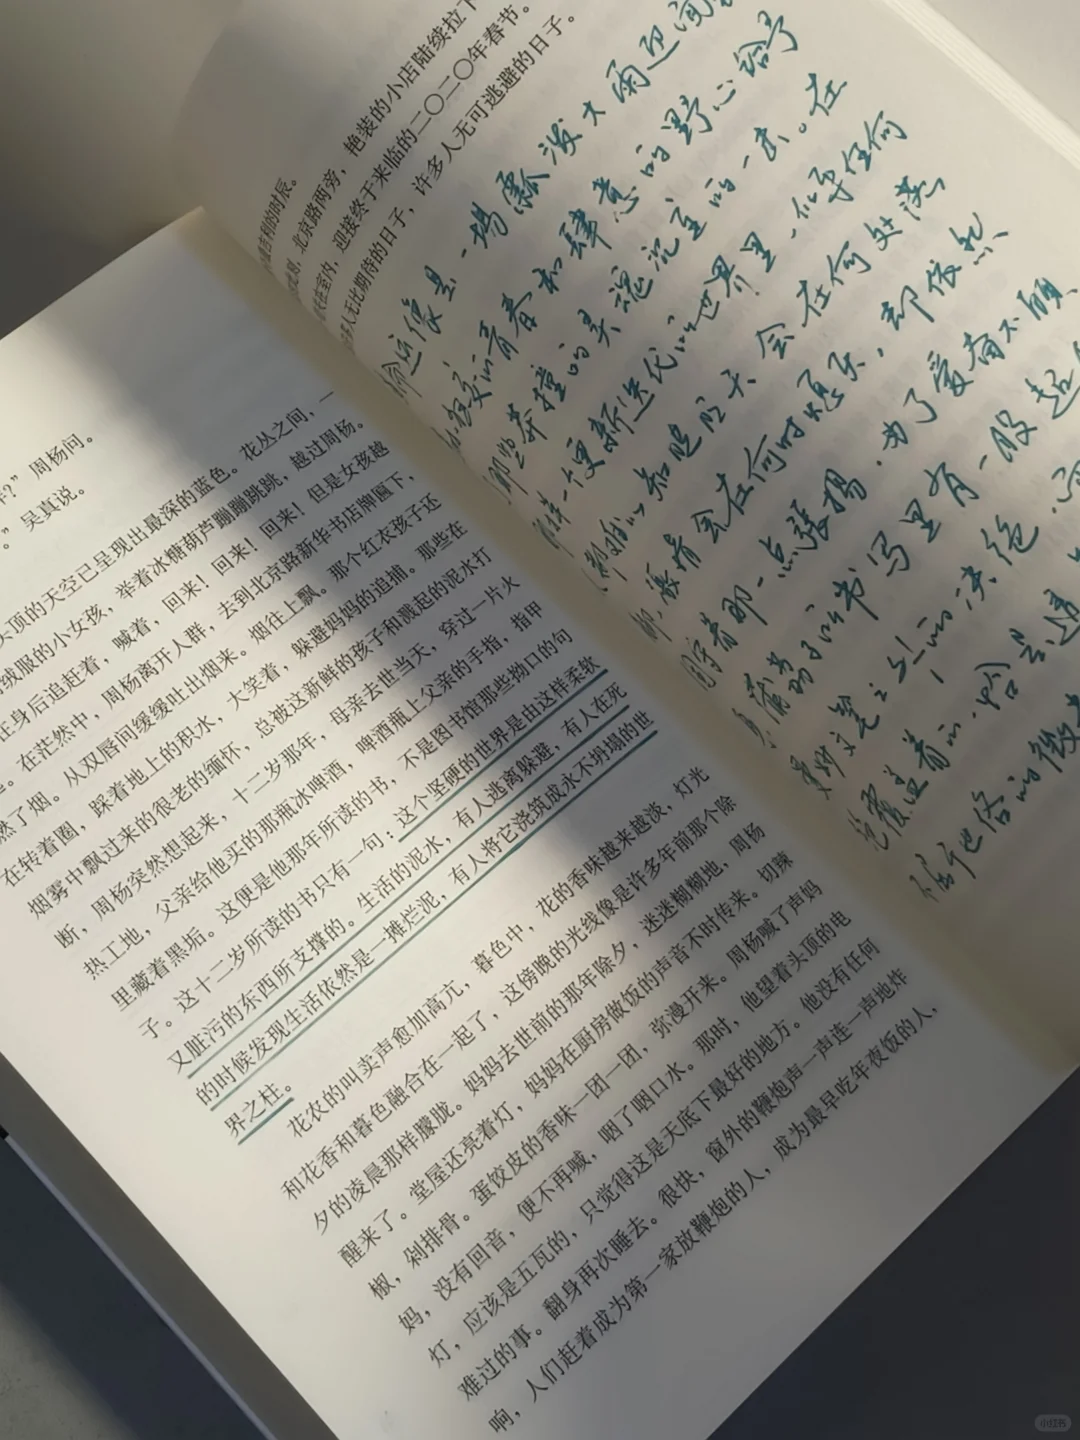 样？”周杨问。
。”吴真说。
头顶的天空已呈现出最深的蓝色。花丛之间，一
绒服的小女孩，举着冰糖葫芦蹦蹦跳跳，越过周杨。
在身后追赶着，喊着，回来！回来！回来！但是女孩越
。在茫然中，周杨离开人群，去到北京路新华书店牌匾下，
燃了烟。从双唇间缓缓吐出烟来。烟往上飘。那个红衣孩子还
在转着圈，踩着地上的积水，大笑着，躲避妈妈的追捕。那些在
烟雾中飘过来的很老的缅怀，总被这新鲜的孩子和溅起的泥水打
断，周杨突然想起来，十二岁那年，母亲去世当天，穿过一片火
热工地，父亲给他买的那瓶冰啤酒，啤酒瓶上父亲的手指，指甲
里藏着黑垢。这便是他那年所读的书，不是图书馆那些拗口的句
子。这十二岁所读的书只有一句：这个坚硬的世界是由这样柔软
又脏污的东西所支撑的。生活的泥水，有人逃离躲避，有人在死
的时候发现生活依然是一摊烂泥，有人将它浇筑成永不坍塌的世
界之柱。
花农的叫卖声愈加高亢，暮色中，花的香味越来越淡，灯光
和花香和暮色融合在一起了，这傍晚的光线像是许多年前那个除
夕的凌晨那样朦胧。妈妈去世前的那年除夕，迷迷糊糊地，周杨
醒来了。堂屋还亮着灯，妈妈在厨房做饭的声音不时传来。切辣
椒，剁排骨。蛋饺皮的香味一团一团，弥漫开来。周杨喊了声妈
妈，没有回音，便不再喊，咽了咽口水。那时，他望着头顶的电
灯，应该是五瓦的，只觉得这是天底下最好的地方。他没有任何
难过的事。翻身再次睡去。很快，窗外的鞭炮声一声连一声地炸
响，人们赶着成为第一家放鞭炮的人，成为最早吃年夜饭的人，
最吉利的时辰。
息，北京路两旁，艳装的小店陆续拉下
在室内，迎接终于来临的二〇二〇年春节。
多人无比期待的日子，许多人无可逃避的日子。
命运像是一場瓢泼大雨
的青春和肆意的野心给予
那些莽撞的灵魂沉重的一击。在
这样一个更新迭代的世界里，似乎任何
人都难以知晓明天会在何处淇
会在何时倾乐，却依然
固守着那一点張揚，为了爱奋不顾
书写里有一股
文笔之上的决绝
覆盖着的，恰是
世俗的微
小红书